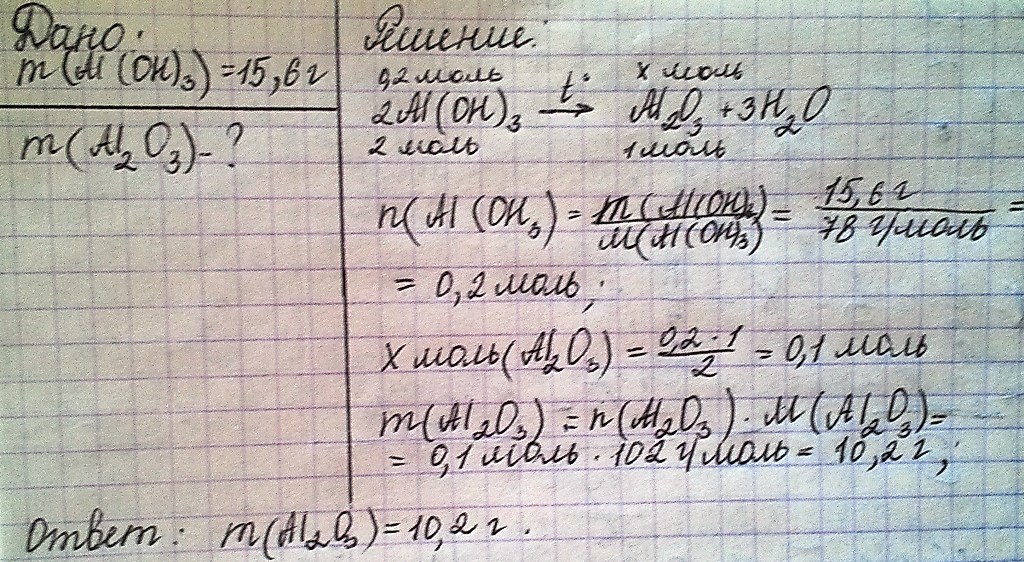 Дано:
m(Al(OH)₃) = 15,6 г
m(Al₂O₃) - ?
Решение:
0,2 моль x моль
2Al(OH)₃ →(t°) Al₂O₃ + 3H₂O
2 моль 1 моль
n(Al(OH₃) = m(Al(OH)₃)/M(Al(OH)₃) = 15,6 г/78 г/моль =
= 0,2 моль;
x моль(Al₂O₃) = 0,2 · 1/2 = 0,1 моль
m(Al₂O₃) = n(Al₂O₃) · M(Al₂O₃) =
= 0,1 моль · 102 г/моль = 10,2 г;
Ответ: m(Al₂O₃) = 10,2 г.